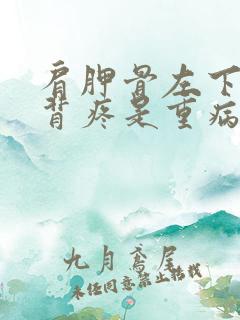 肩胛骨左下
背疼是重病
九月鸢尾
未经同意禁止搭载